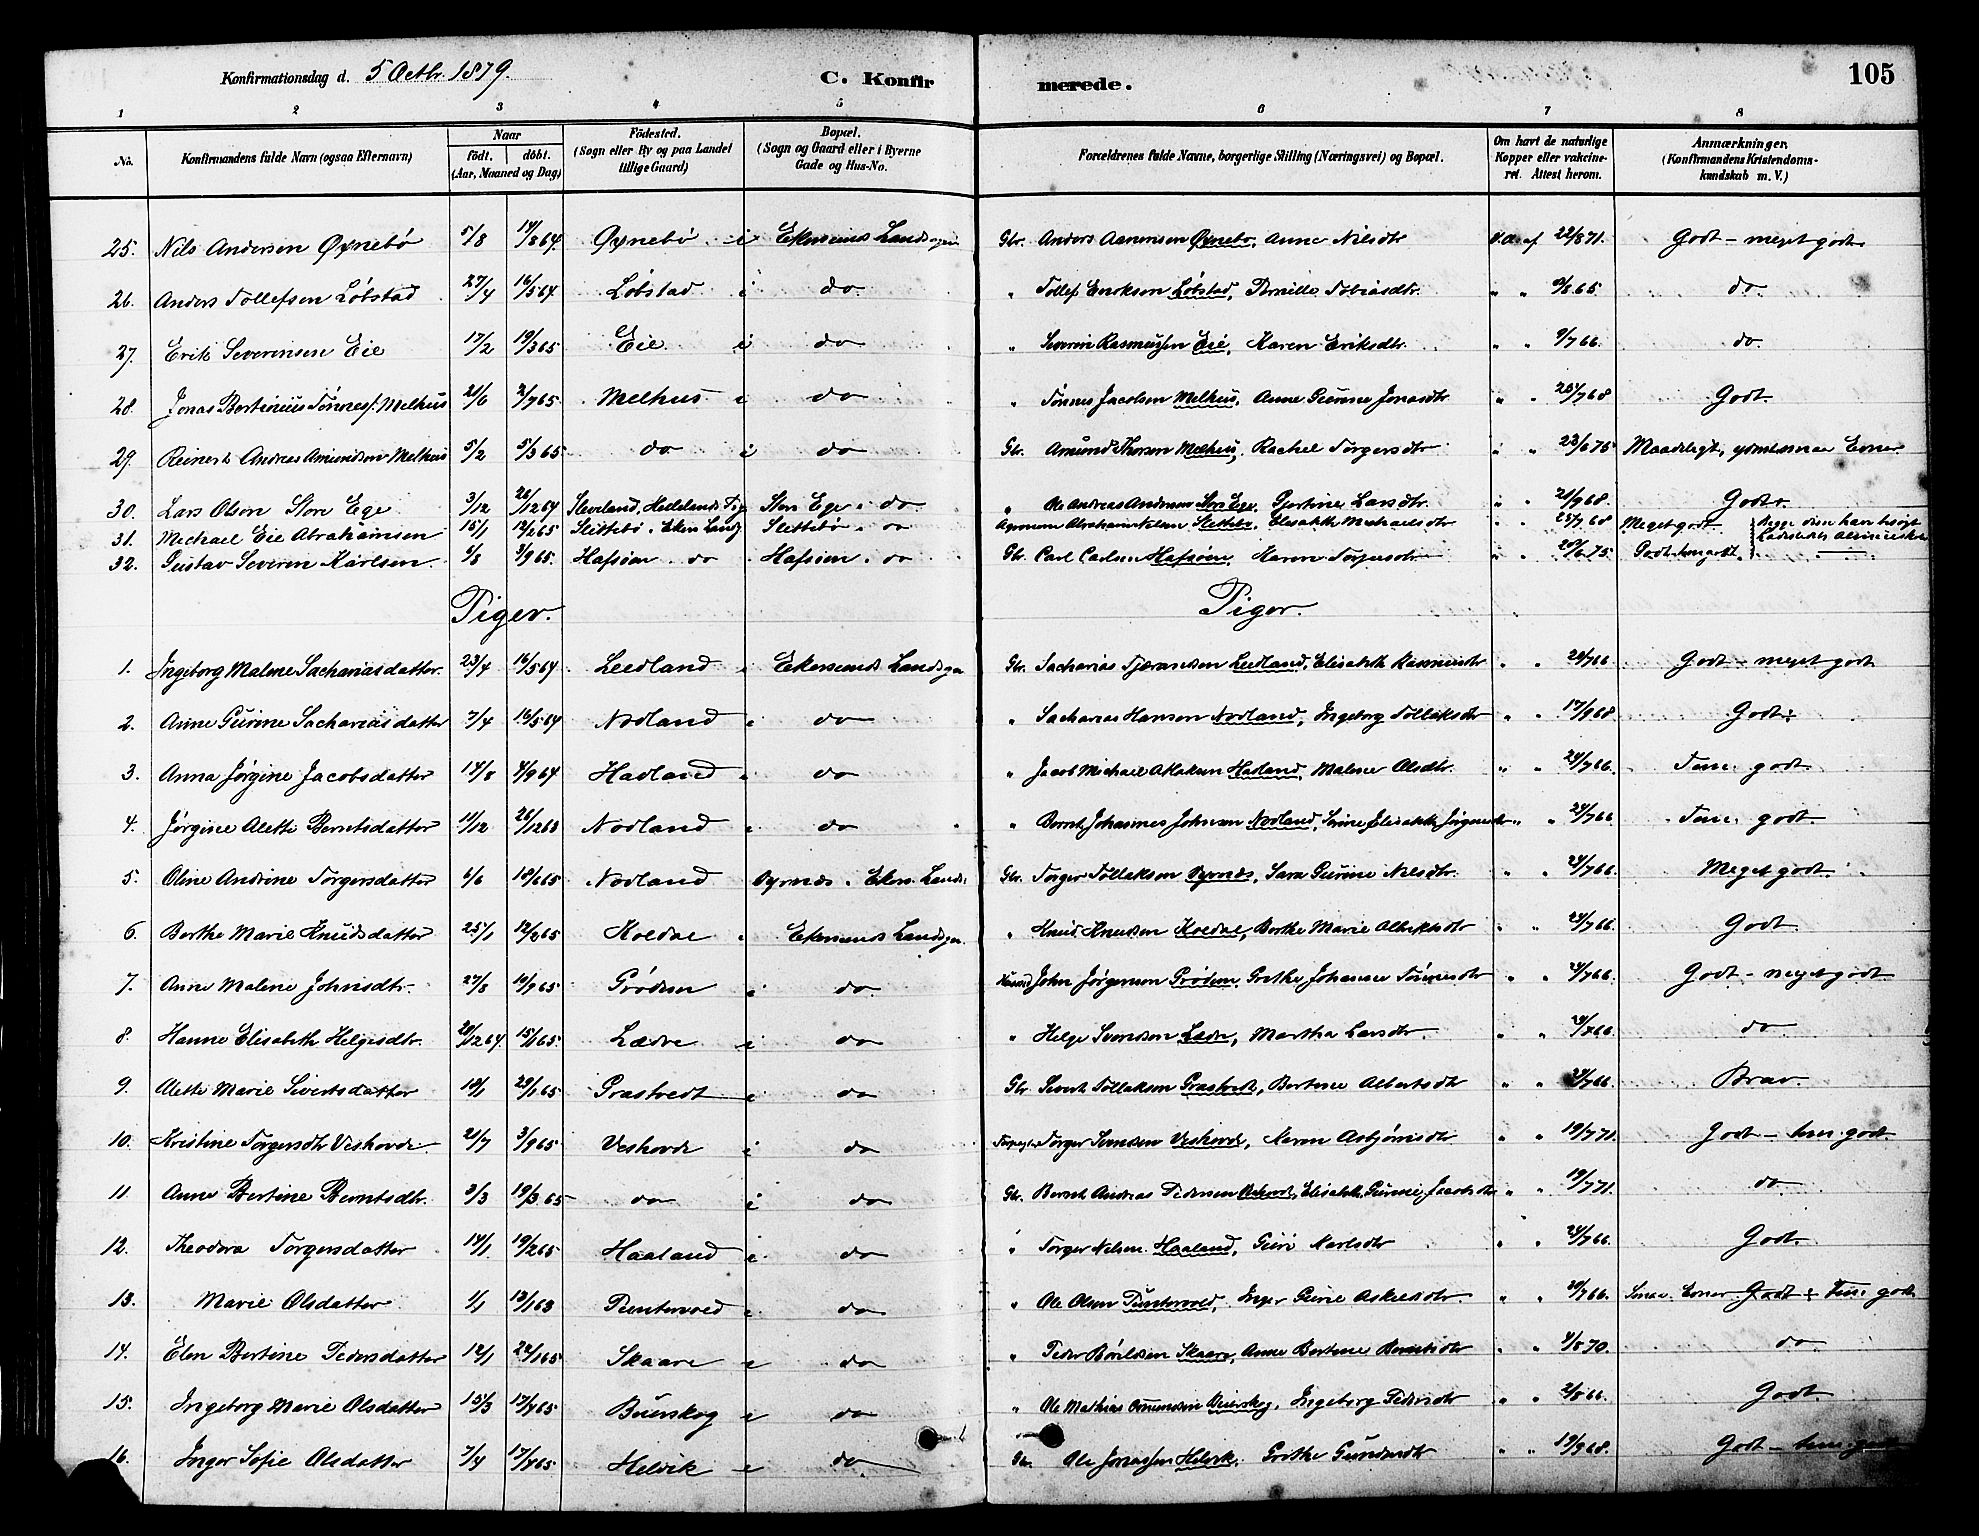 Konfirmationsdag d. 5 Octbr. 1879.
C. Konfir
merede.
105
1 2 3 4 5 6 7 8
No. Konfirmandens fulde Navn (ogsaa Efternavn) Naar födt. döbt. (Aar, Maaned og Dag) Födested. (Sogn eller By og paa Landet tillige Gaard) Bopæl. (Sogn og Gaard eller i Byerne Gade og Hus-No. Forældrenes fulde Navne, borgerlige Stilling (Næringsvei) og Bopæl. Om havt de naturlige Kopper eller vakcineret. Attest herom. Anmærkninger. (Konfirmandens Kristendomskundskab m. V.)
25. Nils Andersen Øxnebö 5/8 14/8 64. Øxnebö i Ekersunds Landsogn Gbr. Anders Aanensen Øxnebo, Anne Nilsdtr V.A. af 22/8 71. Godt - meget godt
26. Anders Tollefsen Löbstad 27/4 16/5 64 Löbstad i do " Tollef Eriksen Löbstad, Pernille Tobiasdtr. " " 65 do.
27. Erik Severensen Eie 17/2 19/3 65 Eie i do " Severin Rasmussen Eie, Karen Eriksdtr. " " 9/7 66. do.
28. Jonas Bertinius Tönnes. Melhus 21/6 2/7 65 Melhus i do " Tönnes Jacobsen Melhus, Anne Gurine Jonasdtr " " 25/7 68 Godt.
29. Reinert Andreas Amundsen Melhus 5/2 5/3 65 do i do Gbr. Amund Thorsen Melhus, Rachel Torgersdtr " " 23/6 75 Maadeligt, Evner
30. Lars Olsen Store Ege 3/12 26/12 64 Sleveland, Hellelands Store Ege i do " Ole Andreas Store Ege, Gjertine Larsdtr. " " 21/9 68. Godt.
31. Michael Eie Abrahamsen 15/1 12/2 65 Slettebö i Ekers. Lands. Slettebö i do Slettebö, Elisabeth Michaelsdtr " " 25/7 68 Meget godt
32. Gustav Severin Karlsen 4/8 3/9 65. Hafsöen do Hafsöen i do Gbr. Carl Carlsen Hafsöen, Karen Torgersdtr " " 20/6 75. Godt
Piger. Piger.
1. Ingeborg Malene Sachariasdatter. 23/4 16/5 64 Leedland i Ekersunds Landsogn Gbr. Sacharias Tjerandsen Leedland, Elisabeth Rasmusdtr " " 24/7 66 Godt - meget godt
2. Anne Gurine Sachariasdatter 7/4 16/5 64 Nodland i do " Sacharias Hansen Nodland, Ingeborg Tollaksdtr " " 17/9 68 Godt
3. Anna Jørgine Jacobsdatter 14/8 4/9 64 Hadland i do " Jacob Michael Atlaksen Hadland, Malene Olsdtr. " " 24/7 66. Tem. godt.
4. Jørgine Alette Berntsdatter 11/12 26/12 63 Nodland i do " Bernt Johannes Johnsen Nodland, Serine Elisabeth Jörgensdtr " " 24/7 66. Tem. godt.
5. Oline Andrine Torgersdatter 6/6 18/6 65 Nodland Øyrnæs i Ekers. Lands. Gbr. Torger Tollaksen Øyrnæs, Sara Gurine Nilsdtr. " " 24/7 66. Meget godt.
6. Berthe Marie Knudsdatter 25/1 12/2 65 Koldal i Ekersunds Landsogn " Knud Knudsen Koldal, Berthe Marie Albrektsdtr " " 24/7 66. Godt.
7. Anne Malene Johnsdtr. 27/8 10/9 65 Grödem i do. Husmd John Jörgensen Grödem, Grethe Johanne Tönnesdtr " " 24/7 66. Godt - meget godt
8. Hanne Elisabeth Helgesdtr. 20/12 64 15/1 65. Lædre i do " Helge Svendsen Lædre, Martha Larsdtr. " " 24/7 66. do
9. Alette Marie Sivertsdatter 10/1 29/1 65 Grastvedt i do Gbr Sivert Tollaksen Grastvedt, Bertine Albertsdtr " " 24/7 66. Brav.
10. Kristine Torgersdtr Veshovde 21/7 3/9 65 Veshovde i do Torger Svendsen Veshovde, Karen Asbjörnsdtr " " 19/7 71. Godt - tem. godt.
11. Anne Bertine Berntsdtr. 3/3 19/3 65 do i do Gbr. Bernt Andreas Pedersen Veshovde, Elisabeth Gurine Jacobsdtr " " 19/7 71. do.
12. Theodora Torgersdatter 14/1 19/2 65 Haaland i do " Torger Nilsen Haaland, Guri Karlsdtr " " 24/7 66. Godt.
13. Marie Olsdatter 1/1 13/1 63 Puntervold i do " Ole Olsen Puntervold, Inger Gurie Askildsdtr. " " 20/7 66. Smaa Evner. Godt : Tem. godt
14. Elen Bertine Pedersdatter 12/1 22/1 65 Skaare i do " Peder Bårdsen Skaare, Anne Bertine Berntsdtr " " 4/8 70. do.
15. Ingeborg Marie Olsdatter 15/3 17/4 65 Buerskog i do " Ole Mathias Omundsen Buerskog, Ingeborg Pedersdtr " " 2/8 66. Godt
16. Inger Sofie Olsdatter 7/4 17/4 65 Helvik i do do. Ole Jonassen Helvik, Grethe Gundersdtr " " 19/9 68. Godt - tem. godt